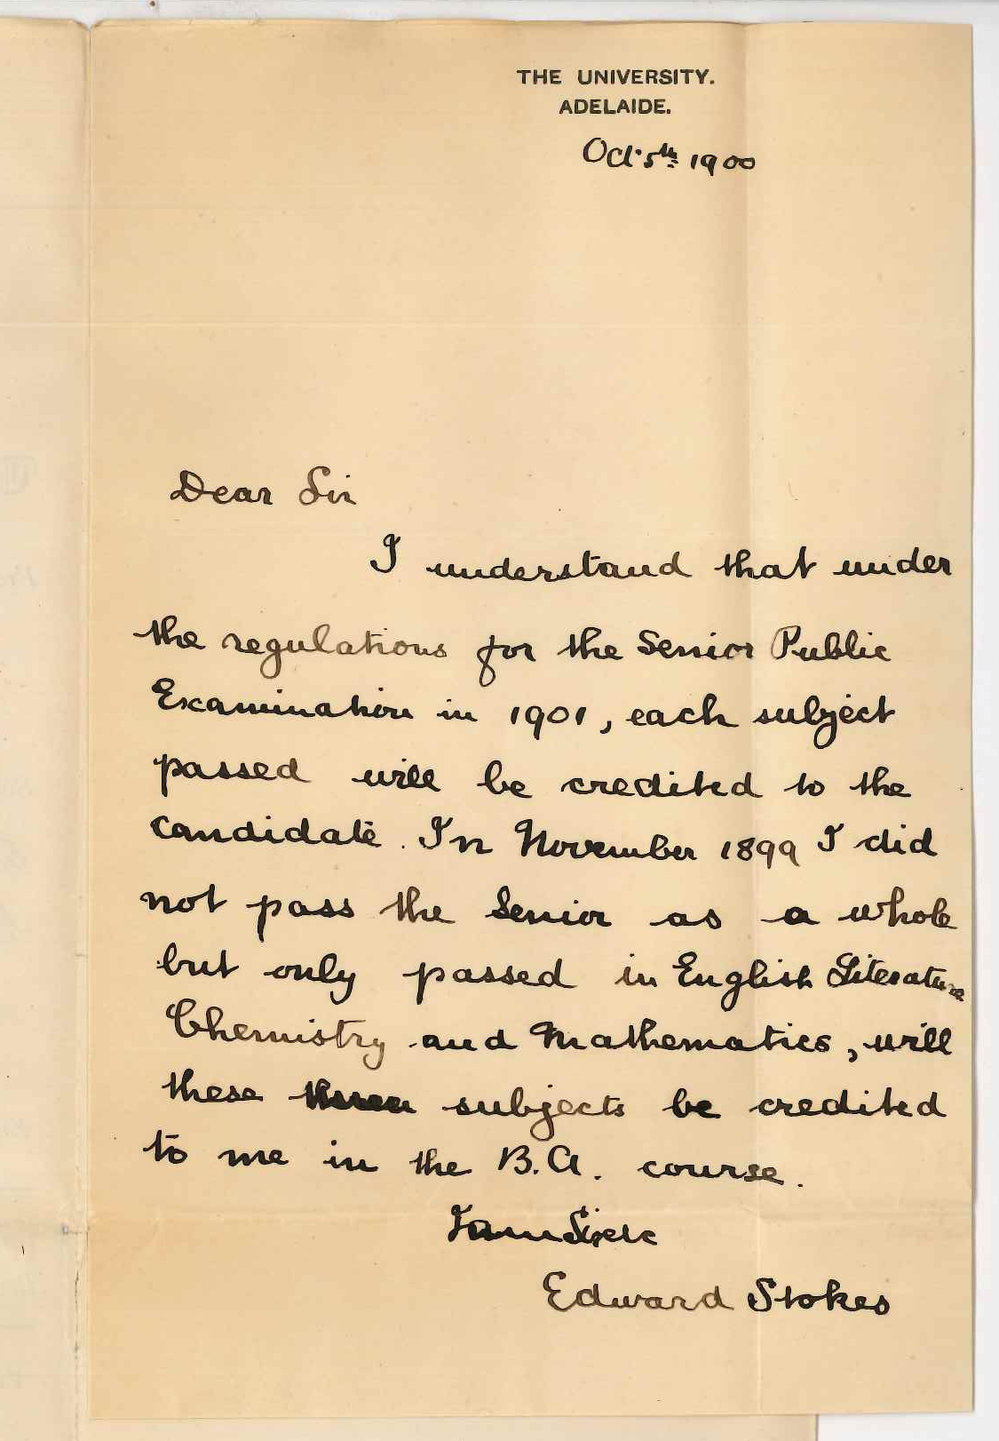 THE UNIVERSITY.
ADELAIDE.
Oct. 5th 1900
Dear Sir
I understand that under
the regulations for the Senior Public
Examination in 1901, each subject
passed will be credited to the
candidate. In November 1899 I did
not pass the Senior as a whole
but only passed in English Literature
Chemistry and Mathematics, will
these subjects be credited
to me in the B.A. course.
I am Sir etc
Edward Stokes